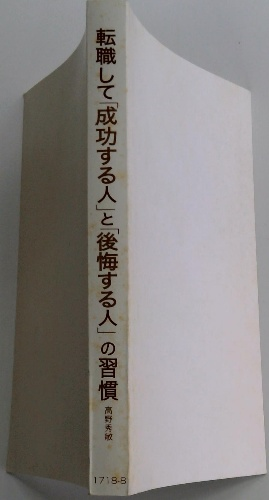 転職して「成功する人」と「後悔する人」の習慣
高野秀敏
1718-8